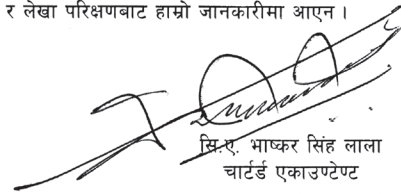 र लेखा परिक्षणबाट हाम्रो जानकारीमा आएन ।
सि.ए. भाष्कर सिंह लाला
चार्टर्ड एकाउण्टेण्ट